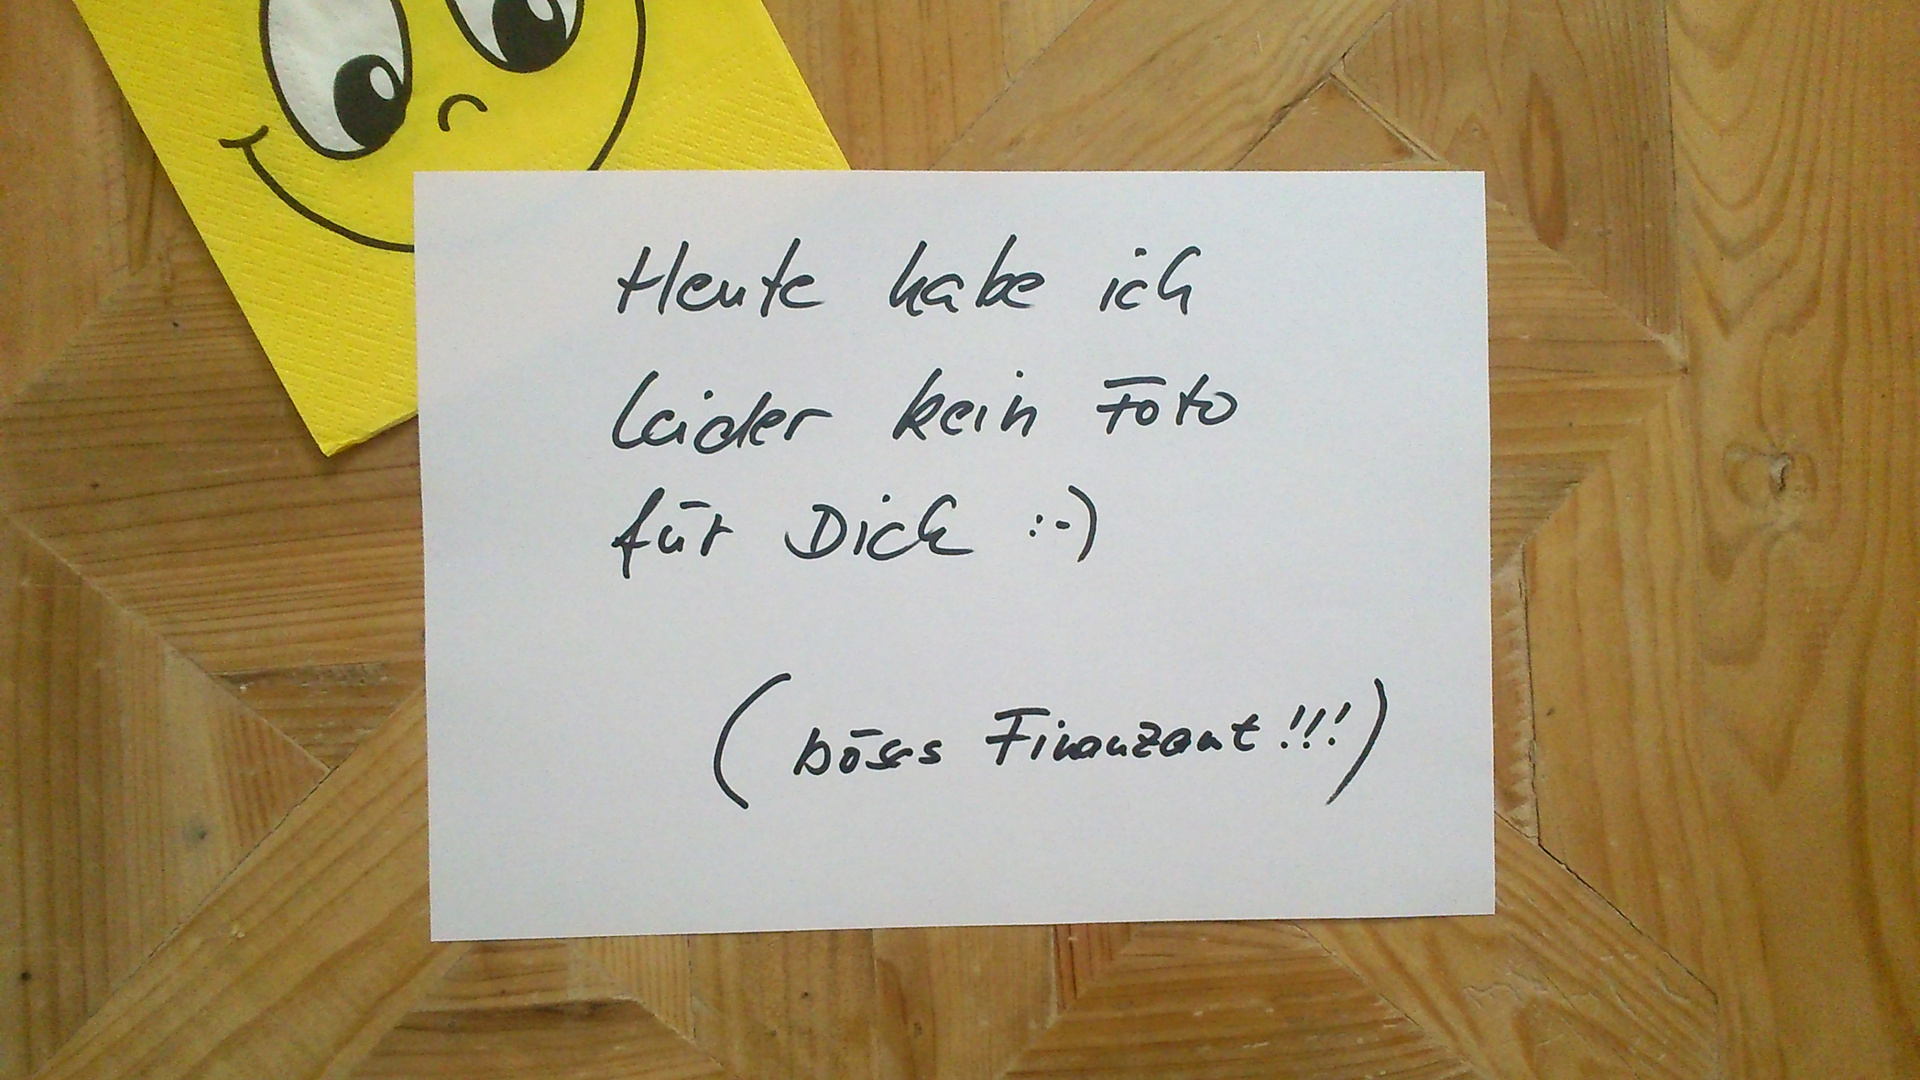 Heute habe ich
leider kein Foto
für Dich :-)
(böses Finanzamt!!!)